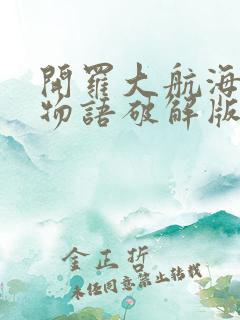 開羅大航海
物語破解版
金正哲
未经同意禁止转载